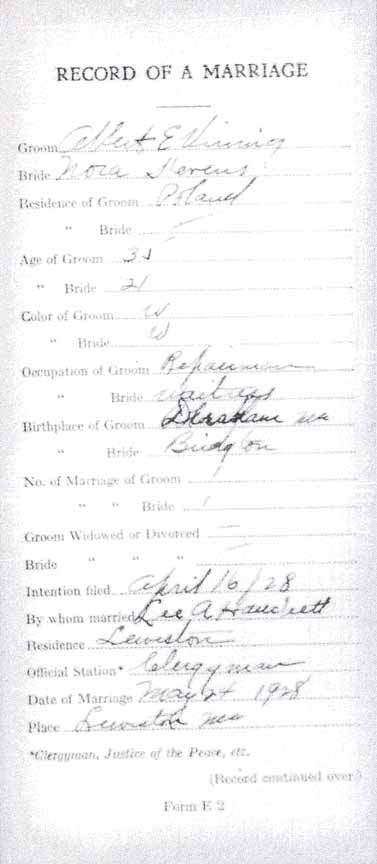 RECORD OF A MARRIAGE
Groom Albert E Vining
Bride Nora Stevens
Residence of Groom Poland
" Bride "
Age of Groom
" Bride 21
Color of Groom W
" Bride W
Occupation of Groom Repairman
" Bride waitress
Birthplace of Groom Me
" Bride Bridgton
No. of Marriage of Groom 1
" " Bride 1
Groom Widowed or Divorced
Bride " " "
Intention filed April 16/28
By whom married Lee A
Residence Lewiston
Official Station* Clergyman
Date of Marriage May 1928
Place Lewiston Me
*Clergyman, Justice of the Peace, etc.
(Record continued over.)
Form E 2